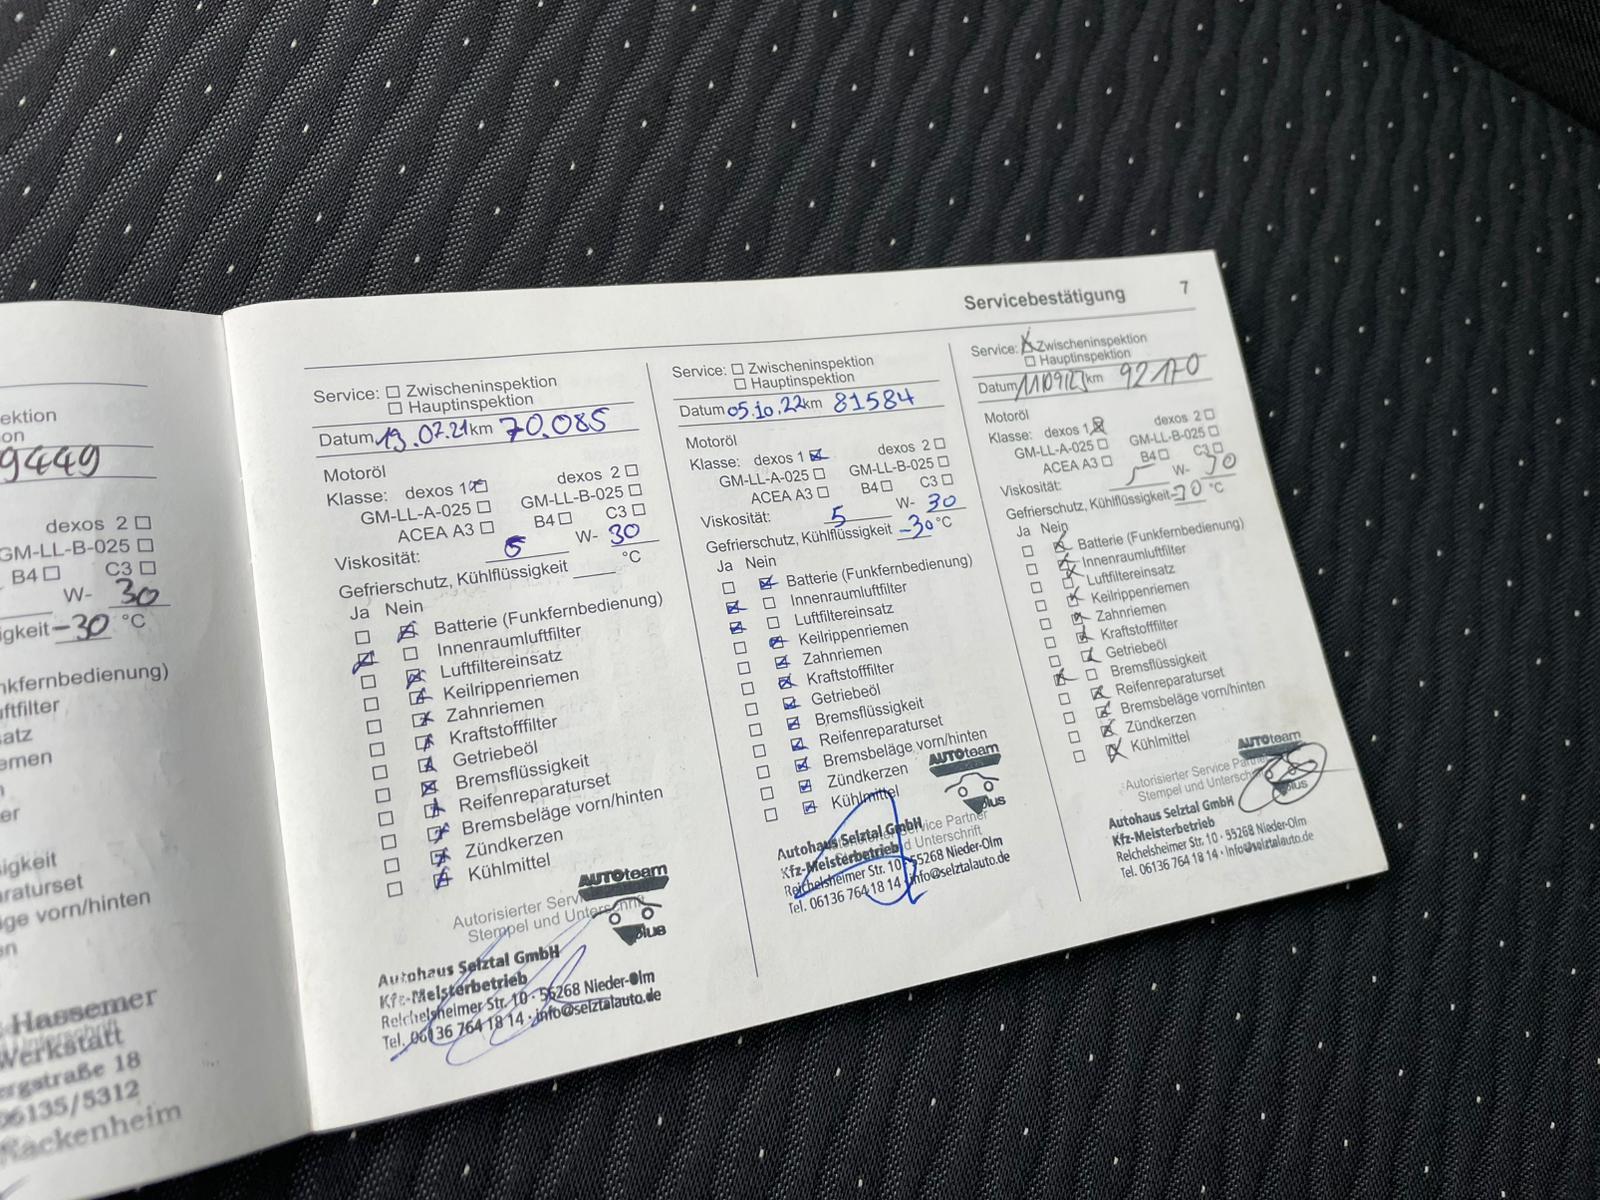 ektion
on
9449
dexos 2 ☐
GM-LL-B-025 ☐
B4 ☐ C3 ☐
W- 30
igkeit -30 °C
nkfernbedienung)
uftfilter
atz
emen
er
sigkeit
araturset
ge vorn/hinten
en
Hassemer
Werkstatt
ergstraße 18
06135/5312
Nackenheim
Servicebestätigung 7
Service: ☐ Zwischeninspektion
☐ Hauptinspektion
Datum 13.07.21 km 70.085
Motoröl
Klasse: dexos 1 ☒ dexos 2 ☐
GM-LL-A-025 ☐ GM-LL-B-025 ☐
ACEA A3 ☐ B4 ☐ C3 ☐
Viskosität: 5 W- 30
Gefrierschutz, Kühlflüssigkeit ____ °C
Ja Nein
☐ ☒ Batterie (Funkfernbedienung)
☒ ☐ Innenraumluftfilter
☐ ☒ Luftfiltereinsatz
☐ ☒ Keilrippenriemen
☐ ☒ Zahnriemen
☐ ☒ Kraftstofffilter
☐ ☒ Getriebeöl
☐ ☒ Bremsflüssigkeit
☐ ☒ Reifenreparaturset
☐ ☒ Bremsbeläge vorn/hinten
☐ ☒ Zündkerzen
☐ ☒ Kühlmittel
AUTOteam
plus
Autorisierter Servi
Stempel und Unterschrift
Autohaus Selztal GmbH
Kfz-Meisterbetrieb
Reichelsheimer Str. 10 · 55268 Nieder-Olm
Tel. 06136 764 18 14 · info@selztalauto.de
Service: ☐ Zwischeninspektion
☐ Hauptinspektion
Datum 05.10.22 km 81584
Motoröl
Klasse: dexos 1 ☒ dexos 2 ☐
GM-LL-A-025 ☐ GM-LL-B-025 ☐
ACEA A3 ☐ B4 ☐ C3 ☐
Viskosität: 5 W- 30
Gefrierschutz, Kühlflüssigkeit -30 °C
Ja Nein
☐ ☒ Batterie (Funkfernbedienung)
☒ ☐ Innenraumluftfilter
☒ ☐ Luftfiltereinsatz
☐ ☒ Keilrippenriemen
☐ ☒ Zahnriemen
☐ ☒ Kraftstofffilter
☐ ☒ Getriebeöl
☐ ☒ Bremsflüssigkeit
☐ ☒ Reifenreparaturset
☐ ☒ Bremsbeläge vorn/hinten
☐ ☒ Zündkerzen
☐ ☒ Kühlmittel
AUTOteam
plus
Service Partner
d Unterschrift
Autohaus Selztal GmbH
Kfz-Meisterbetrieb
Reichelsheimer Str. 10 · 55268 Nieder-Olm
Tel. 06136 764 18 14 · info@selztalauto.de
Service: ☒ Zwischeninspektion
☐ Hauptinspektion
Datum 11109123 km 92170
Motoröl
Klasse: dexos 1 ☒ dexos 2 ☐
GM-LL-A-025 ☐ GM-LL-B-025 ☐
ACEA A3 ☐ B4 ☐ C3 ☐
Viskosität: 5 W- 30
Gefrierschutz, Kühlflüssigkeit -30 °C
Ja Nein
☐ ☒ Batterie (Funkfernbedienung)
☐ ☒ Innenraumluftfilter
☐ ☒ Luftfiltereinsatz
☐ ☒ Keilrippenriemen
☐ ☒ Zahnriemen
☐ ☒ Kraftstofffilter
☐ ☒ Getriebeöl
☒ ☐ Bremsflüssigkeit
☐ ☒ Reifenreparaturset
☐ ☒ Bremsbeläge vorn/hinten
☐ ☒ Zündkerzen
☐ ☒ Kühlmittel
AUTOteam
plus
Autorisierter Service Partner
Stempel und Unterschrift
Autohaus Selztal GmbH
Kfz-Meisterbetrieb
Reichelsheimer Str. 10 · 55268 Nieder-Olm
Tel. 06136 764 18 14 · info@selztalauto.de